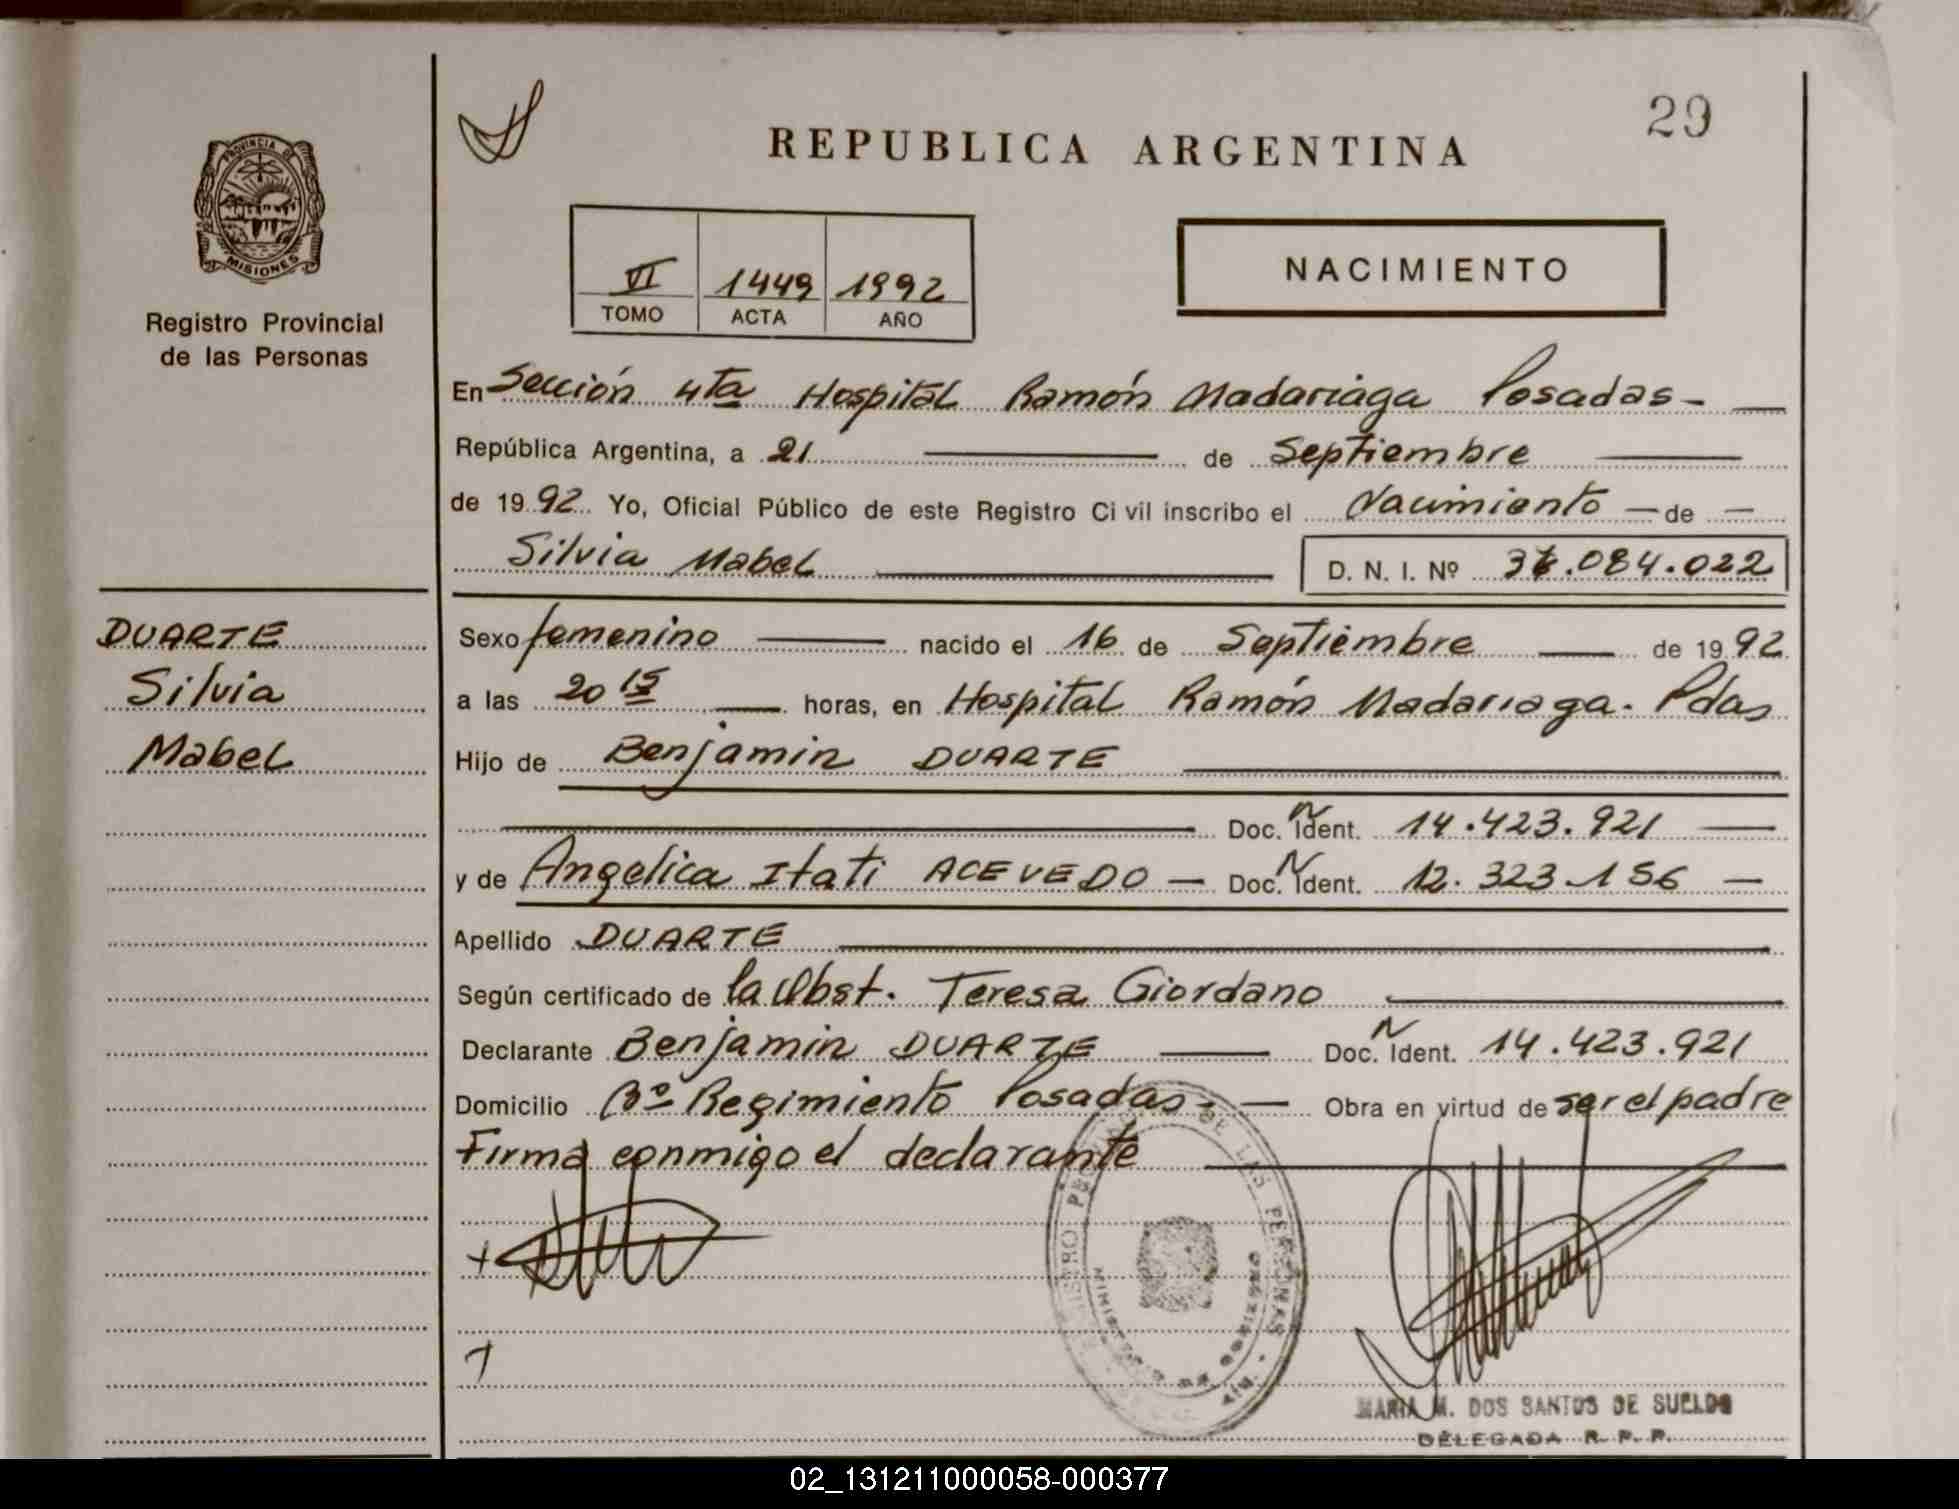 29
REPUBLICA ARGENTINA
PROVINCIA DE
MISIONES
Registro Provincial
de las Personas
VI 1449 1992
TOMO ACTA AÑO
NACIMIENTO
En Sección 4ta Hospital Ramón Madariaga Posadas-
República Argentina, a 21 de Septiembre
de 1992 Yo, Oficial Público de este Registro Civil inscribo el Nacimiento de
Silvia Mabel D. N. I. Nº .084.022
DUARTE
Silvia
Mabel
Sexo femenino nacido el 16 de Septiembre de 1992
a las 20 15 horas, en Hospital Ramón Madariaga. Pdas
Hijo de Benjamin DUARTE
Doc. N Ident. 14.423.921
y de Angelica Itati ACEVEDO - Doc. N Ident. 12.323.156
Apellido DUARTE
Según certificado de la Obst. Teresa Giordano
Declarante Benjamin DUARTE Doc. N Ident. 14.423.921
Domicilio Bº Regimiento Posadas- Obra en virtud de ser el padre
Firma conmigo el declarante
REGISTRO PROVINCIAL DE LAS PERSONAS
MARIA M. DOS SANTOS DE SUELDO
DELEGADA R. P. P.
02_131211000058-000377